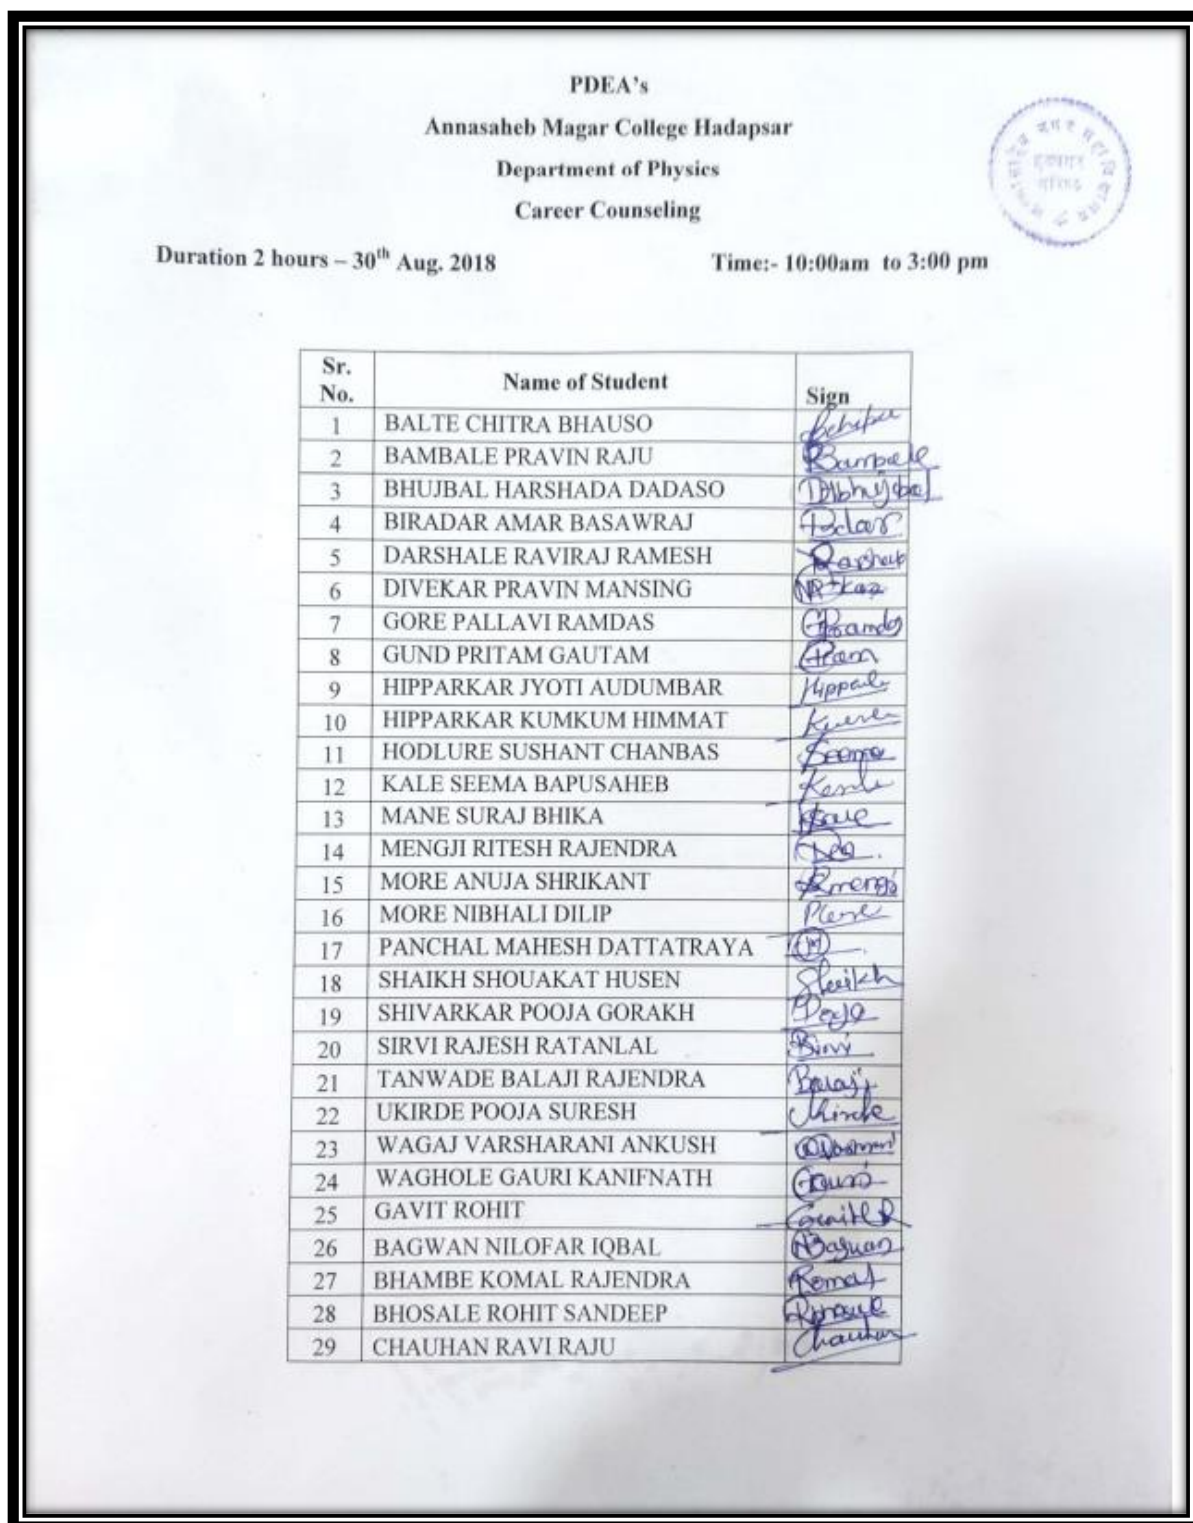 PDEA's
Annasaheb Magar College Hadapsar
Department of Physics
Career Counseling
Duration 2 hours – 30th Aug. 2018 Time:- 10:00am to 3:00 pm
Sr. No. Name of Student Sign
1 BALTE CHITRA BHAUSO
2 BAMBALE PRAVIN RAJU Bambale
3 BHUJBAL HARSHADA DADASO
4 BIRADAR AMAR BASAWRAJ
5 DARSHALE RAVIRAJ RAMESH
6 DIVEKAR PRAVIN MANSING
7 GORE PALLAVI RAMDAS
8 GUND PRITAM GAUTAM
9 HIPPARKAR JYOTI AUDUMBAR
10 HIPPARKAR KUMKUM HIMMAT
11 HODLURE SUSHANT CHANBAS
12 KALE SEEMA BAPUSAHEB
13 MANE SURAJ BHIKA
14 MENGJI RITESH RAJENDRA
15 MORE ANUJA SHRIKANT
16 MORE NIBHALI DILIP
17 PANCHAL MAHESH DATTATRAYA
18 SHAIKH SHOUAKAT HUSEN Sheikh
19 SHIVARKAR POOJA GORAKH
20 SIRVI RAJESH RATANLAL
21 TANWADE BALAJI RAJENDRA Balaji
22 UKIRDE POOJA SURESH
23 WAGAJ VARSHARANI ANKUSH
24 WAGHOLE GAURI KANIFNATH Gauri
25 GAVIT ROHIT
26 BAGWAN NILOFAR IQBAL
27 BHAMBE KOMAL RAJENDRA Komal
28 BHOSALE ROHIT SANDEEP
29 CHAUHAN RAVI RAJU Chauhan